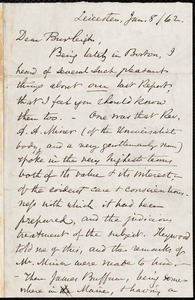 Leicester, Jan. 8/62.
Dear Burleigh,
Being lately in Boston, I
heard of several such pleasant
things about our last Report,
that I feel you should know
them too. — One was that Rev.
A. A. Miner (of the Universalist
body, and a very gentlemanly man)
spoke in the very highest terms
both of the value & its interest —
of the evident care & conscientious-
ness with which it had been
prepared, and the judicious
treatment of the subject. Heywood
told me of this, and the remarks of
Mr. Miner were made to him —
Then James Buffum, being some-
where in Maine, & having a